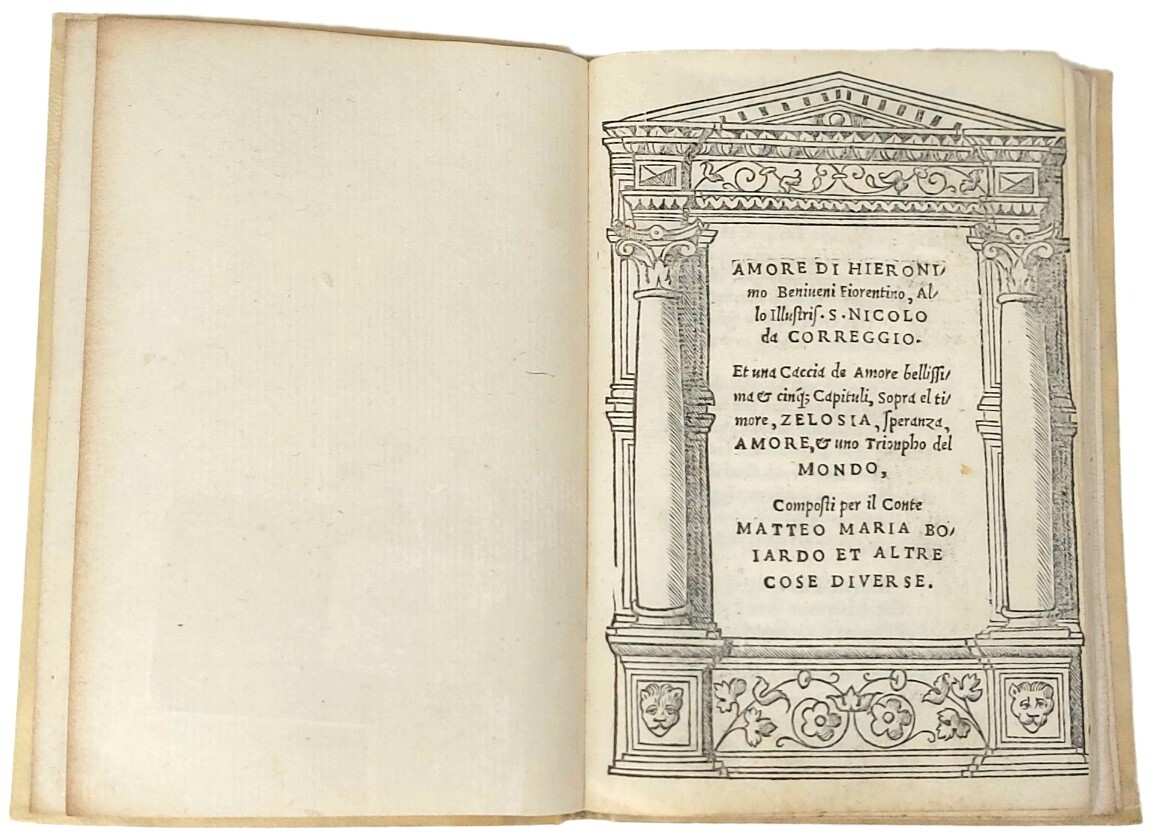 AMORE DI HIERONI/
mo Beniueni Fiorentino, Al/
lo Illustris. S. NICOLO
da CORREGGIO.
Et una Caccia de Amore bellissi/
ma & cinq; Capituli, Sopra el ti/
more, ZELOSIA, speranza,
AMORE, & uno Triũpho del
MONDO,
Composti per il Conte
MATTEO MARIA BO/
IARDO ET ALTRE
COSE DIVERSE.